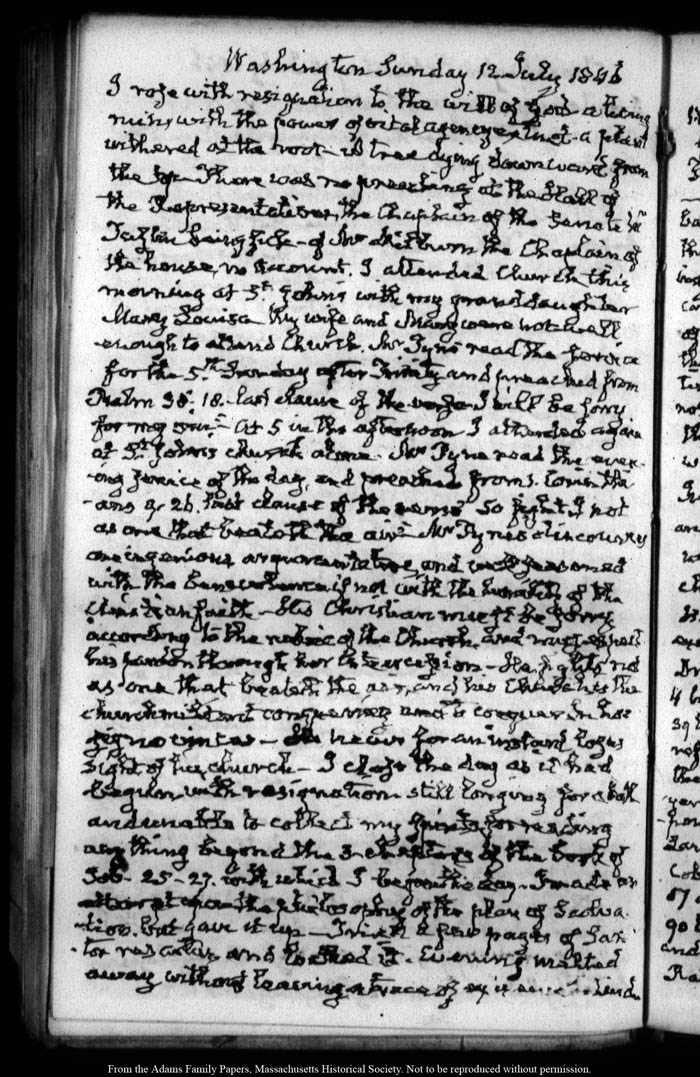 Washington Sunday 12 July 1846
I rose with resignation to the will of God
with the power of vital agency extinct a plant
withered at the root a tree dying downward from
the top There was no preaching at the Hall of
the Representatives, the Chaplain of the Senate
being sick of Mr Milburn the Chaplain of
the house, no account. I attended Church this
morning at St. John's with my granddaughter
Mary Louisa My wife and Mary were not well
enough to attend Church. Mr Pyne read the service
for the 5th Sunday after Trinity and preached from
Psalm 38. 18. last clause of the verse I will be sorry
for my sin At 5 in the afternoon I attended again
at St. Johns church alone. Mr Pyne read the even-
ing service of the day, and preached from 1. Corinthi-
ans 9. 26. last clause of the verse So fight I not
as one that beateth the air Mr Pyne's discourses
are ingenious argumentative, and well seasoned
with the if not with the of the
Christian faith His Christian must be sorry
according to the of the Church and must expect
his pardon through her intercession He fights not
as one that beateth the air, and his Church is the
church militant conquering and to conquer In hoc
signo vinces He never for an instant loses
sight of his church I close the day as it had
begun with resignation still longing for a
and unable to collect my spirits for reading
any thing beyond the 3 chapters of the book of
Job 25-27. with which I began the day I made an
at the philosophy of the plan of Salva-
tion. but gave it up a few pages of Sar-
tor resartus, and Evening melted
away without leaving a trace of
From the Adams Family Papers, Massachusetts Historical Society. Not to be reproduced without permission.